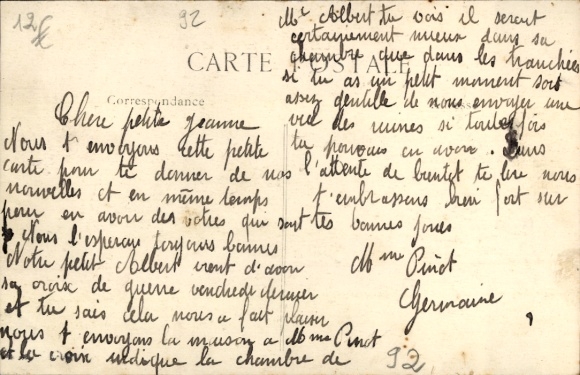 12€
92
CARTE POSTALE
Correspondance
Chère petite Jeanne
Nous t envoyons cette petite
carte pour te donner de nos
nouvelles et en même temps
pour en avoir des votres qui sont
Nous l'esperons toujours bonnes
Notre petit Albert vient d'avoir
sa croix de guerre vendredi dernier
et tu sais cela nous a fait plaisir
nous t envoyons la maison a Mme Pinot
et la croix indique la chambre de
Mr Albert tu vois il serait
certainement mieux dans sa
chambre que dans les tranchées
si tu as un petit moment soit
assez gentille de nous envoyer une
vue des ruines si toutefois
tu pouvais en avoir. Dans
l'attente de bientot te lire nous
t'embrassons bien fort sur
tes bonnes joues
Mme Pinot
Germaine
92